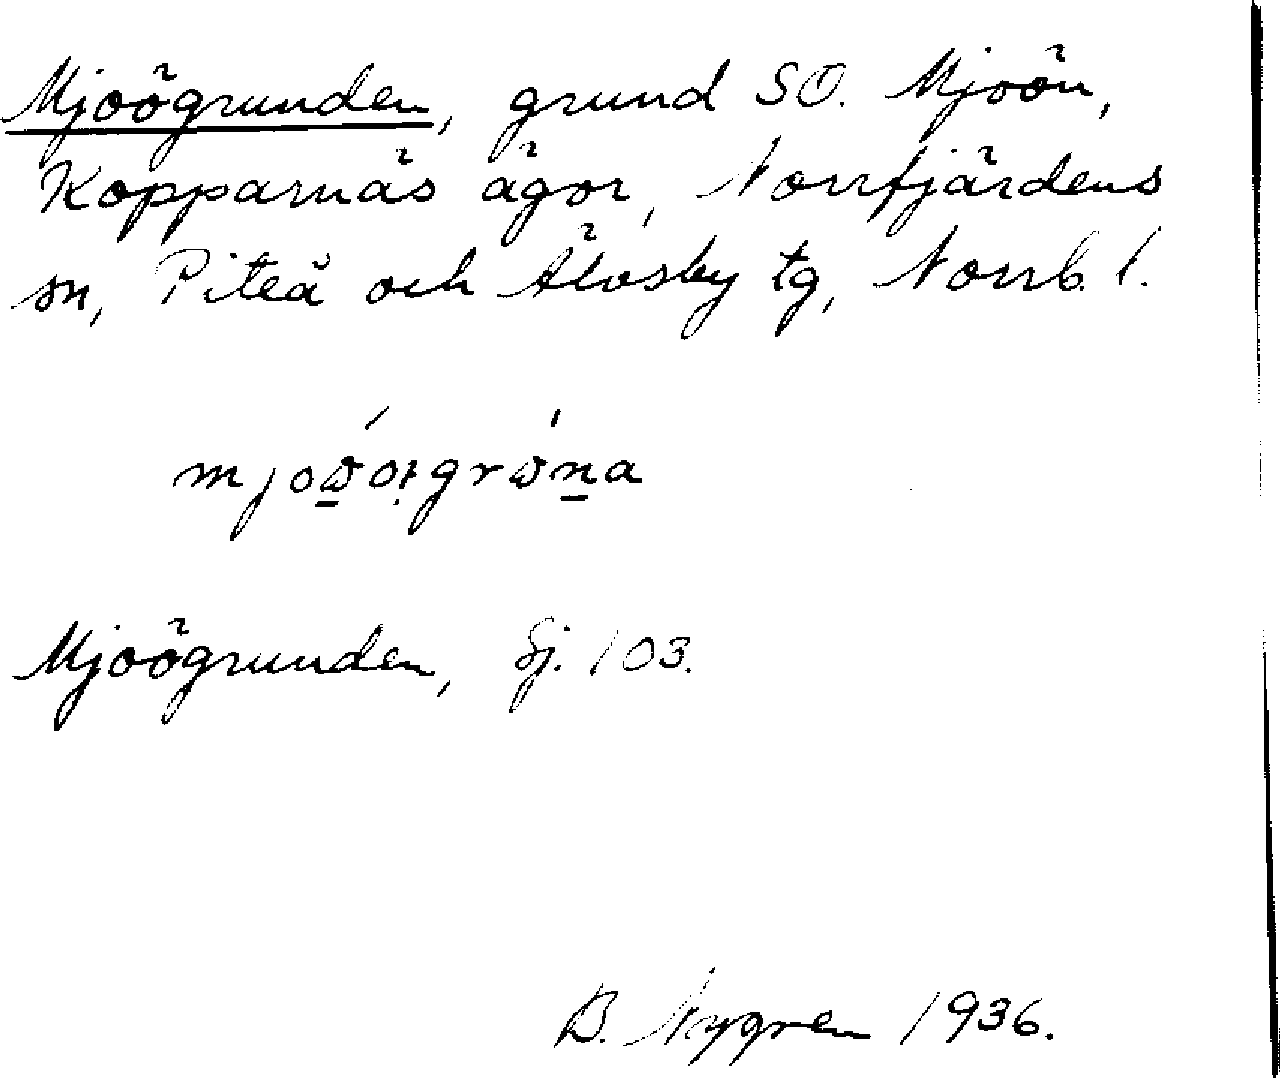 Mjoögrunden, grund SO. Mjoön,
Kopparnäs ägor, Norrfjärdens
sn, Piteå och Älvsby tg, Norrb. l.
Mjoögrunden, Sj. 103.
B. Nygren 1936.